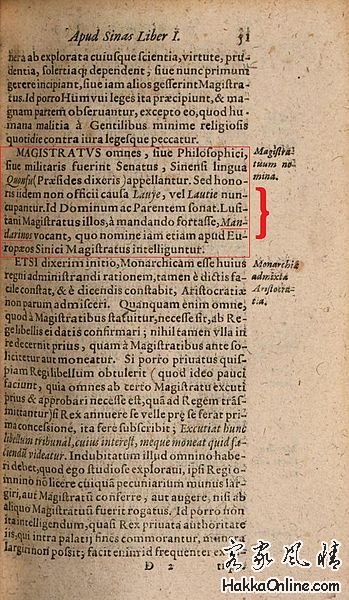 Apud Sinas Liber I. 51
nera ab explorata cuiusque scientia, virtute, pru-
dentia, solertiaq; dependent, siue nunc primum
gerere incipiant, siue iam alios gesserint Magistra-
tus. Id porro Humvui leges ita præcipiunt, & ma-
gnam partem obseruantur, excepto eo, quod hu-
mana malitia à Gentilibus minime religiosis
quotidie contra iura legesque peccatur.
MAGISTRATVS omnes, siue Philosophici,
siue militaris fuerint Senatus, Sinensi lingua
Quonfu (Præsides dixoris) appellantur. Sed hono-
ris idem non officii causa Lauye, vel Lautie nun-
cupantur. Id Dominum ac Parentem sonat. Lusi-
tani Magistratus illos, à mandando fortasse, Man-
darinos vocant, quo nomine iam etiam apud Eu-
ropæos Sinici Magistratus intelliguntur.
Magistra-
tuum no-
mina.
ETSI dixerim initio, Monarchicam esse huius
regni administrandi rationem, tamen è dictis fa-
cile constat, & è dicendis constabit, Aristocratiæ
non parum admisceri. Quanquam enim omne,
quod à Magistratibus statuitur, necesse sit, ab Re-
ge libellis ei datis confirmari; nihil tamen vlla in
re decernit prius, quam à Magistratibus ante so-
licitetur aut moneatur. Si porro priuatus quis-
piam Regi libellum obtulerit (quod ideo pauci
faciunt, quia omnes ab certo Magistratu excuti
prius & approbari necesse est, quã ad Regem trãs-
mittantur) si Rex annuere se velle præ se ferat pri-
ma concessione, ita fere subscribit; Excutiat hunc
libellum tribunal, cuius interest, meque moneat quid fa-
ciendũ videatur. Indubitatum illud omnino habe-
ri debet, quod ego studiose exploraui, ipsi Regi o-
mnino nõ licere cuiquã pecuniarium munus lar-
giri, aut Magistratũ conferre, aut augere, nisi ab
aliquo Magistratuũ fuerit rogatus. Id porro non
ita intelligendum, quasi Rex priuata authoritate
iis, qui intra palatij fines commorantur, nihil
largiri non possit; facit enim id frequenter ex
D 2
Monarchiæ
admixta
Aristocra-
tia.
客家風情
HakkaOnline.com